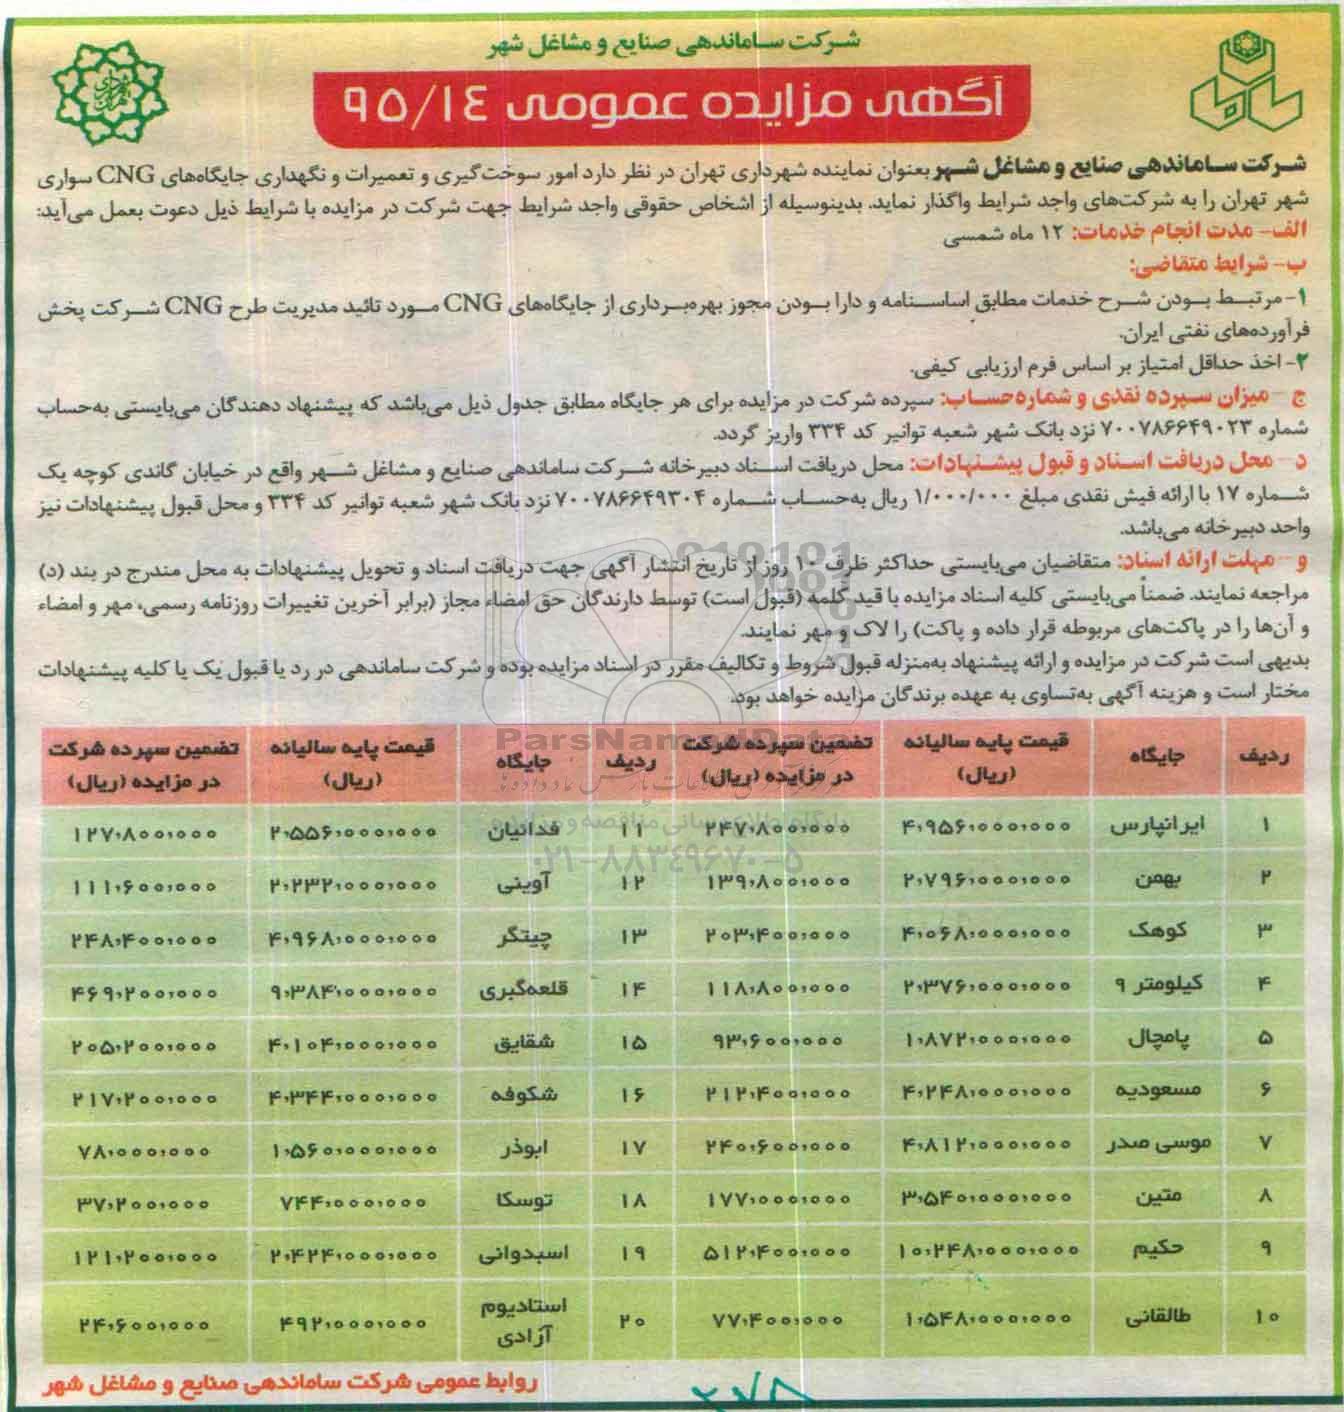 شرکت ساماندهی صنایع و مشاغل شهر
آگهی مزایده عمومی ۹۵/۱۴
شرکت ساماندهی صنایع و مشاغل شهر بعنوان نماینده شهرداری تهران در نظر دارد امور سوخت‌گیری و تعمیرات و نگهداری جایگاه‌های CNG سواری
شهر تهران را به شرکت‌های واجد شرایط واگذار نماید. بدینوسیله از اشخاص حقوقی واجد شرایط جهت شرکت در مزایده با شرایط ذیل دعوت بعمل می‌آید:
الف- مدت انجام خدمات: ۱۲ ماه شمسی
ب- شرایط متقاضی:
۱- مرتبط بودن شرح خدمات مطابق اساسنامه و دارا بودن مجوز بهره‌برداری از جایگاه‌های CNG مورد تائید مدیریت طرح CNG شرکت پخش
فرآورده‌های نفتی ایران.
۲- اخذ حداقل امتیاز بر اساس فرم ارزیابی کیفی.
ج - میزان سپرده نقدی و شماره‌حساب: سپرده شرکت در مزایده برای هر جایگاه مطابق جدول ذیل می‌باشد که پیشنهاد دهندگان می‌بایستی به‌حساب
شماره ۷۰۰۷۸۶۶۴۹۰۲۳ نزد بانک شهر شعبه توانیر کد ۳۳۴ واریز گردد.
د- محل دریافت اسناد و قبول پیشنهادات: محل دریافت اسناد دبیرخانه شرکت ساماندهی صنایع و مشاغل شهر واقع در خیابان گاندی کوچه یک
شماره ۱۷ با ارائه فیش نقدی مبلغ ۱/۰۰۰/۰۰۰ ریال به‌حساب شماره ۷۰۰۷۸۶۶۴۹۳۰۴ نزد بانک شهر شعبه توانیر کد ۳۳۴ و محل قبول پیشنهادات نیز
واحد دبیرخانه می‌باشد.
و - مهلت ارائه اسناد: متقاضیان می‌بایستی حداکثر ظرف ۱۰ روز از تاریخ انتشار آگهی جهت دریافت اسناد و تحویل پیشنهادات به محل مندرج در بند (د)
مراجعه نمایند. ضمناً می‌بایستی کلیه اسناد مزایده با قید کلمه (قبول است) توسط دارندگان حق امضاء مجاز (برابر آخرین تغییرات روزنامه رسمی، مهر و امضاء
و آن‌ها را در پاکت‌های مربوطه قرار داده و پاکت) را لاک و مهر نمایند.
بدیهی است شرکت در مزایده و ارائه پیشنهاد به‌منزله قبول شروط و تکالیف مقرر در اسناد مزایده بوده و شرکت ساماندهی در رد یا قبول یک یا کلیه پیشنهادات
مختار است و هزینه آگهی به‌تساوی به عهده برندگان مزایده خواهد بود.
ردیف جایگاه قیمت پایه سالیانه (ریال) تضمین سپرده شرکت در مزایده (ریال) ردیف جایگاه قیمت پایه سالیانه (ریال) تضمین سپرده شرکت در مزایده (ریال)
۱ ایرانپارس ۴،۹۵۶،۰۰۰،۰۰۰ ۲۴۷،۸۰۰،۰۰۰ ۱۱ فدائیان ۲،۵۵۶،۰۰۰،۰۰۰ ۱۲۷،۸۰۰،۰۰۰
۲ بهمن ۲،۷۹۶،۰۰۰،۰۰۰ ۱۳۹،۸۰۰،۰۰۰ ۱۲ آوینی ۲،۲۳۲،۰۰۰،۰۰۰ ۱۱۱،۶۰۰،۰۰۰
۳ کوهک ۴،۰۶۸،۰۰۰،۰۰۰ ۲۰۳،۴۰۰،۰۰۰ ۱۳ چیتگر ۴،۹۶۸،۰۰۰،۰۰۰ ۲۴۸،۴۰۰،۰۰۰
۴ کیلومتر ۹ ۲،۳۷۶،۰۰۰،۰۰۰ ۱۱۸،۸۰۰،۰۰۰ ۱۴ قلعه‌گبری ۹،۳۸۴،۰۰۰،۰۰۰ ۴۶۹،۲۰۰،۰۰۰
۵ پامچال ۱،۸۷۲،۰۰۰،۰۰۰ ۹۳،۶۰۰،۰۰۰ ۱۵ شقایق ۴،۱۰۴،۰۰۰،۰۰۰ ۲۰۵،۲۰۰،۰۰۰
۶ مسعودیه ۴،۲۴۸،۰۰۰،۰۰۰ ۲۱۲،۴۰۰،۰۰۰ ۱۶ شکوفه ۴،۳۴۴،۰۰۰،۰۰۰ ۲۱۷،۲۰۰،۰۰۰
۷ موسی صدر ۴،۸۱۲،۰۰۰،۰۰۰ ۲۴۰،۶۰۰،۰۰۰ ۱۷ ابوذر ۱،۵۶۰،۰۰۰،۰۰۰ ۷۸،۰۰۰،۰۰۰
۸ متین ۳،۵۴۰،۰۰۰،۰۰۰ ۱۷۷،۰۰۰،۰۰۰ ۱۸ توسکا ۷۴۴،۰۰۰،۰۰۰ ۳۷،۲۰۰،۰۰۰
۹ حکیم ۱۰،۲۴۸،۰۰۰،۰۰۰ ۵۱۲،۴۰۰،۰۰۰ ۱۹ اسبدوانی ۲،۴۲۴،۰۰۰،۰۰۰ ۱۲۱،۲۰۰،۰۰۰
۱۰ طالقانی ۱،۵۴۸،۰۰۰،۰۰۰ ۷۷،۴۰۰،۰۰۰ ۲۰ استادیوم آزادی ۴۹۲،۰۰۰،۰۰۰ ۲۴،۶۰۰،۰۰۰
ParsNamadData
۰۲۱-۸۸۳۴۹۶۷۰-۵
روابط عمومی شرکت ساماندهی صنایع و مشاغل شهر